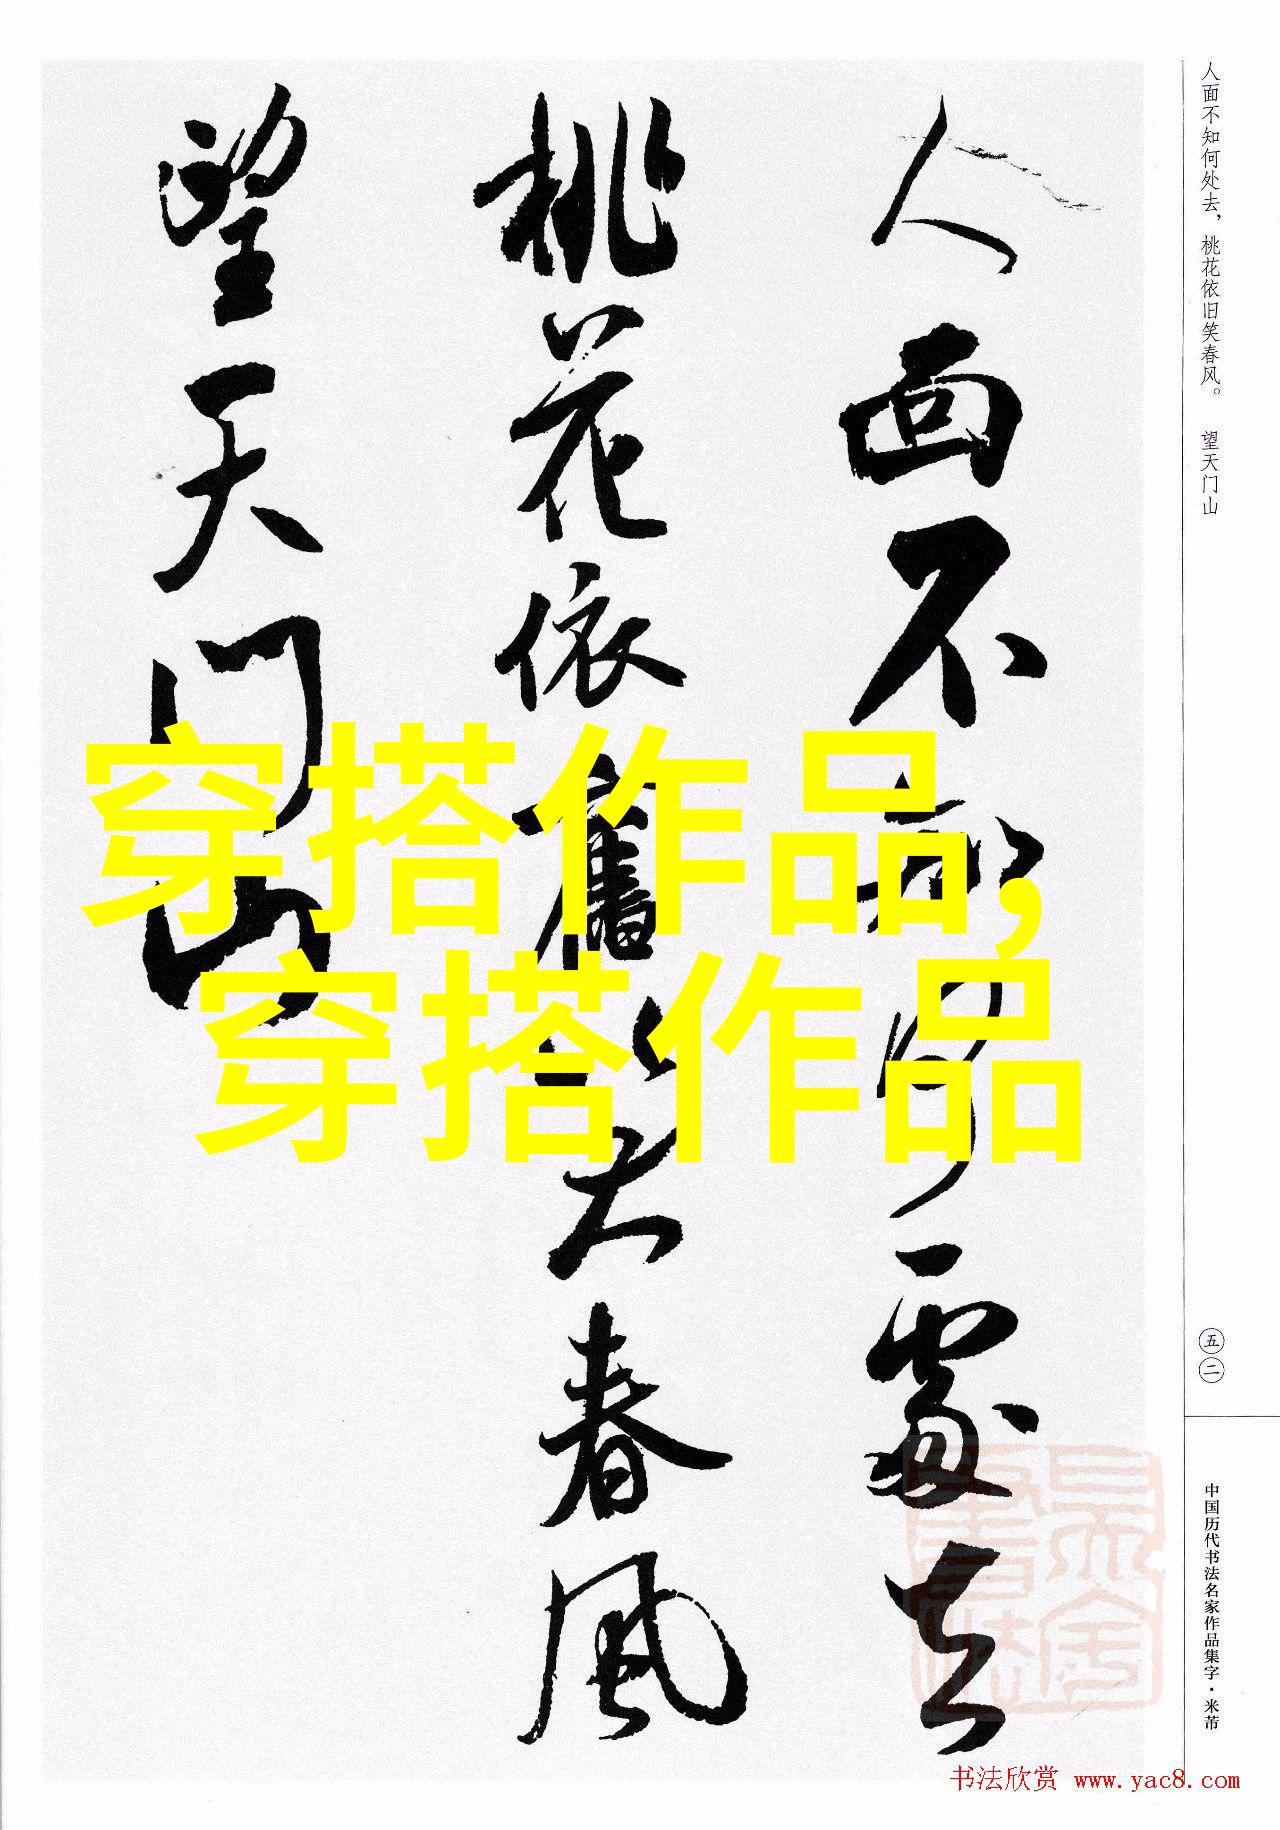 人面不知何處去
桃花依舊笑春風
望天门山
穿搭作品,
穿搭作品
人面不知何处去，桃花依旧笑春风。 望天门山
五二
中国历代书法名家作品集字·米芾
书法欣赏 www.yac8.com